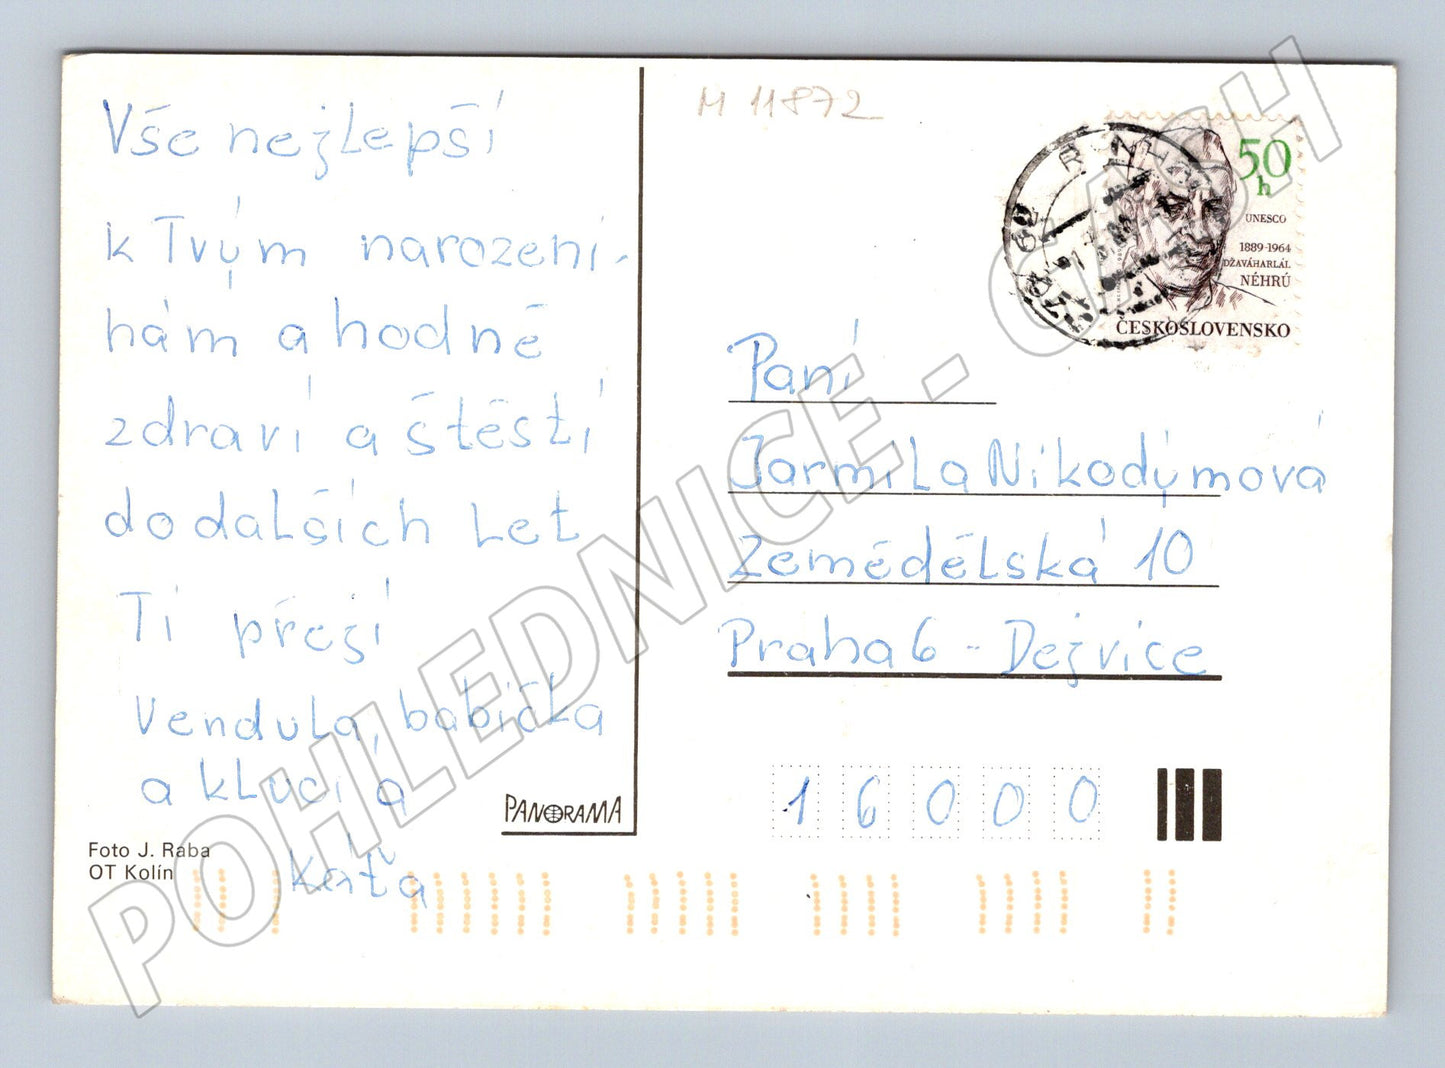 Vše nejlepší
k Tvým narozeni-
nám a hodně
zdraví a štěstí
do dalších let
Ti přejí
Vendula, babička
a kluci a
Káťa
Foto J. Rába
OT Kolín
PANORAMA
M 11872
50
h
UNESCO
1889-1964
DŽAVÁHARLÁL
NÉHRÚ
ČESKOSLOVENSKO
Paní
Jarmila Nikodýmová
Zemědělská 10
Praha 6 - Dejvice
16000
POHLEDNICE - CASH